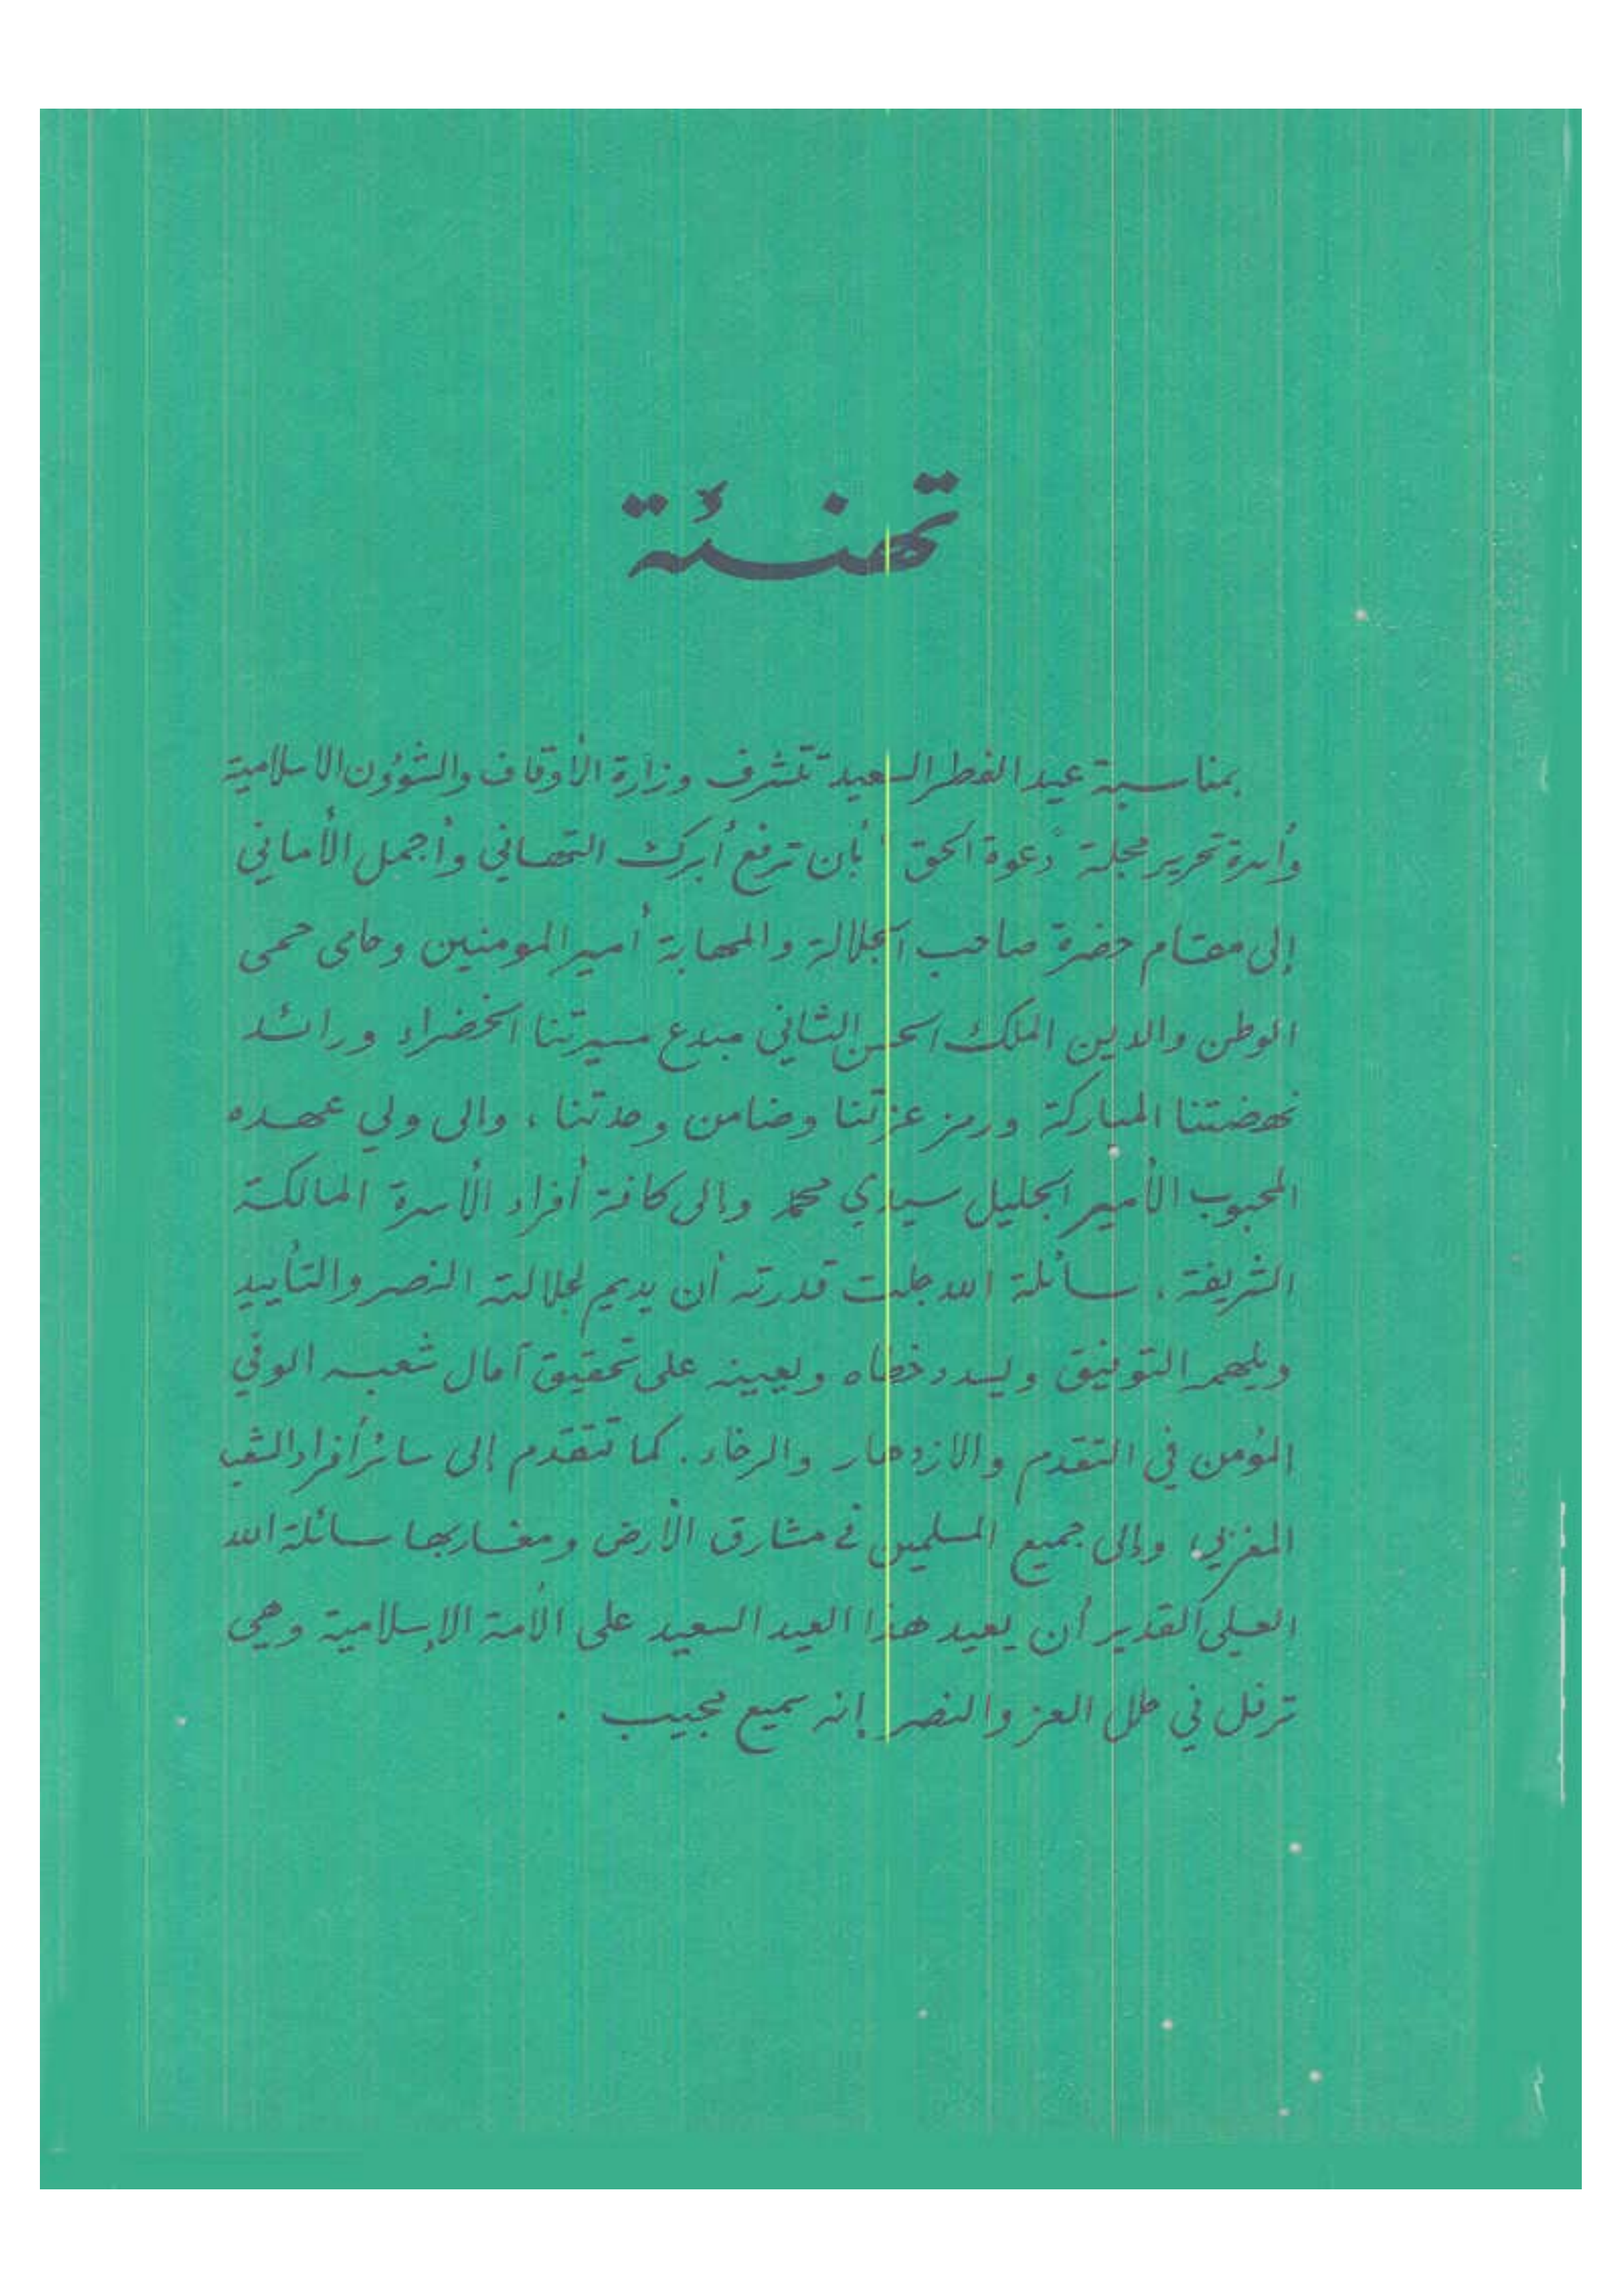 تهنئة
بمناسبة عيد الفطر السعيد تتشرف وزارة الأوقاف والشؤون الاسلامية
وأسرة تحرير مجلة "دعوة الحق" بأن ترفع أبرك التهاني وأجمل الأماني
إلى مقام حضرة صاحب الجلالة والمهابة أمير المومنين وحامى حمى
الوطن والدين الملك الحسن الثاني مبدع مسيرتنا الخضراء ورائد
نهضتنا المباركة ورمز عزتنا وضامن وحدتنا ، والى ولي عهده
المحبوب الأمير الجليل سيدي محمد وإلى كافة أفراد الأسرة المالكة
الشريفة ، سائلة الله جلت قدرته أن يديم لجلالته النصر والتأييد
ويلهمه التوفيق ويسدد خطاه ويعينه على تحقيق آمال شعبه الوفي
المؤمن في التقدم والازدهار والرخاء . كما تتقدم إلى سائر أفراد الشعب
المغربي، وإلى جميع المسلمين في مشارق الأرض ومغاربها سائلة الله
العلي القدير أن يعيد هذا العيد السعيد على الأمة الإسلامية وهي
ترفل في حلل العز والنصر إنه سميع مجيب .